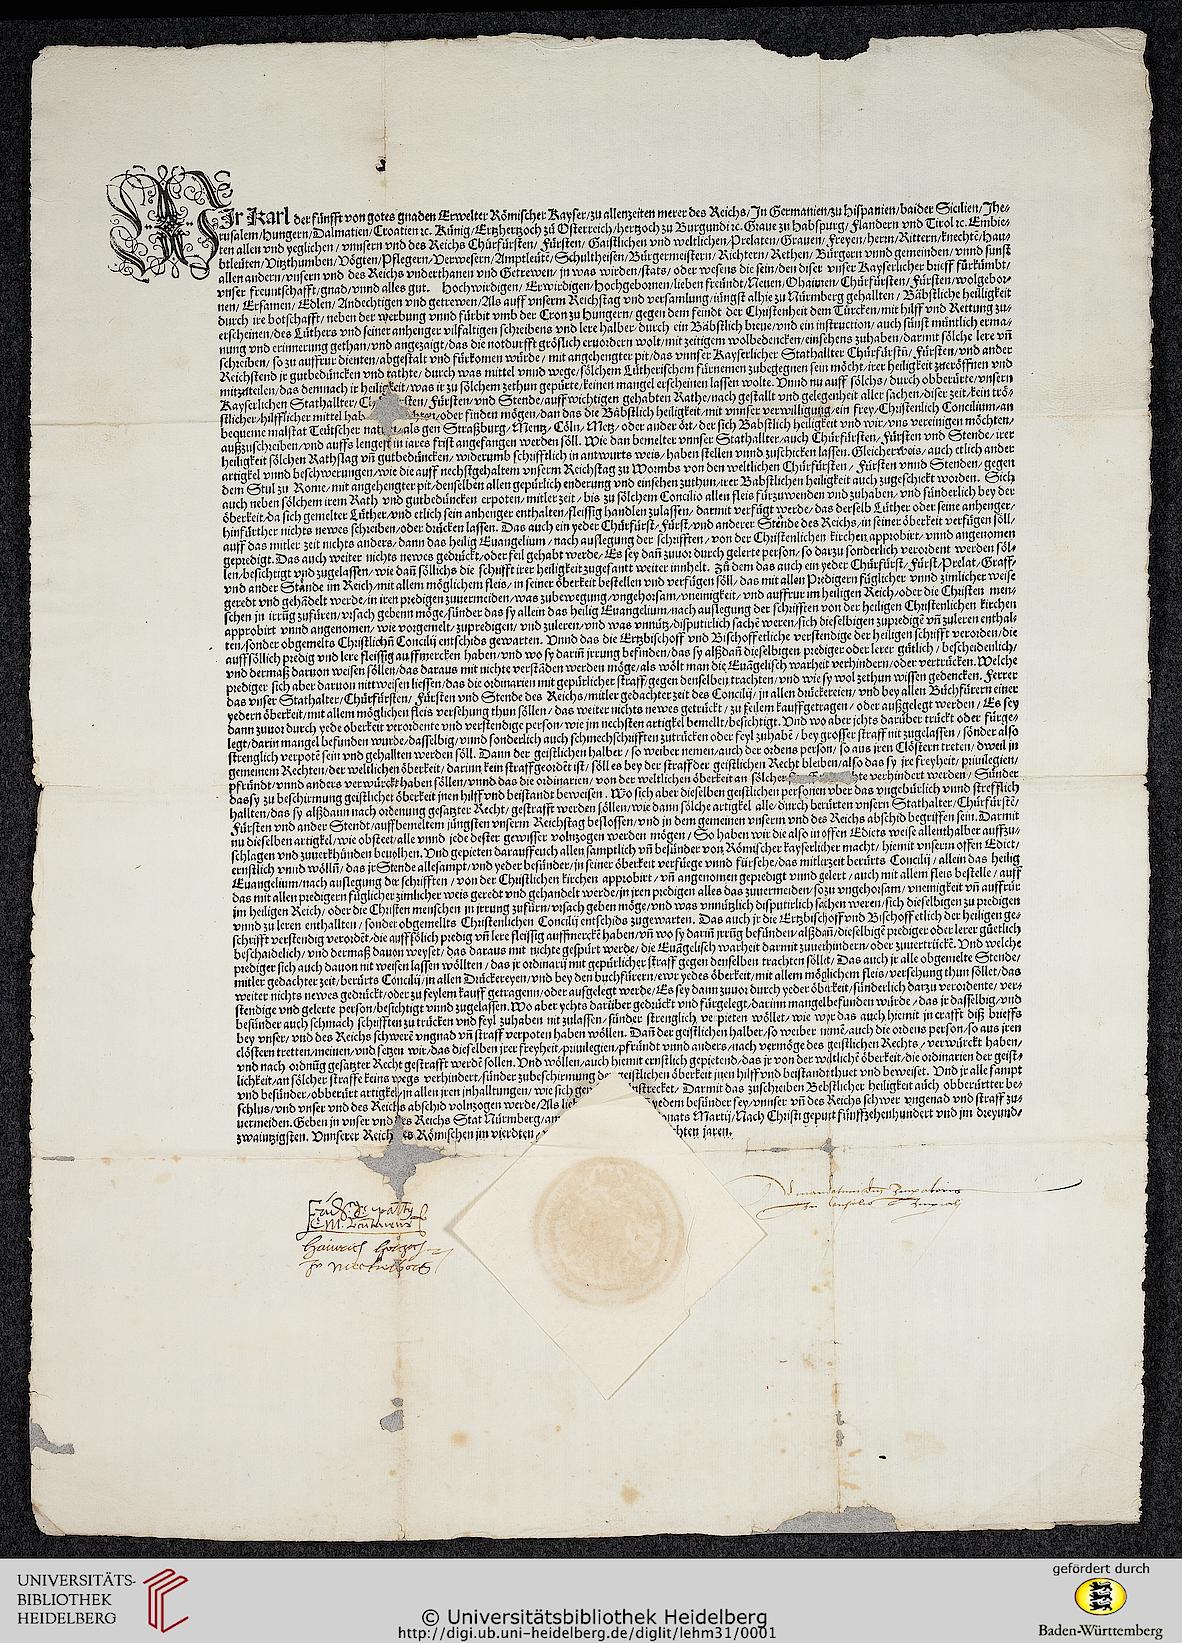 WIr Karl der fünfft von gotes gnaden Erwelter Römischer Kayser/zu allenzeiten merer des Reichs/Jn Germanien/zu Hispanien/baider Sicilien/Jhe⸗
rusalem/Hungern/Dalmatien/Croatien ꝛc. Künig/Ertzhertzoch zů Österreich/hertzog zu Burgundi ꝛc. Graue zu Habspurg/Flandern vnd Tirol ꝛc. Embie⸗
ten allen vnd yeglichen/vnnsern vnd des Reichs Chürfürsten/Fürsten/Gaistlichen vnd weltlichen/Prelaten/Grauen/Freyen/herrn/Rittern/knechtē/Hau⸗
btleüten/Vitzthumben/Vögten/Pflegern/Verwesern/Amptleütē/Schultheisen/Bürgermeistern/Richtern/Rethen/Bürgern vnnd gemeinden/vnnd sunst
allen andern/vnsern vnd des Reichs vnderthanen vnd Getrewen/in was wirden/stats/oder wesens die sein/den diser vnser Kayserlicher brieff fürkumbt/
vnser freuntschafft/gnad/vnnd alles gut. Hochwirdigen/Erwirdigen/Hochgebornen/lieben freündt/Neuen/Ohaimen/Chürfürsten/Fürsten/wolgebor⸗
nen/Ersamen/Edlen/Andechtigen vnd getrewen/Als auff vnserm Reichstag vnd versamlung/jüngst alhie zu Nürmberg gehallten/Bäbstliche heiligkeit
durch ire botschafft/neben der werbung vnnd fürbit vmb der Cron zu Hungern/gegen dem feindt der Christenheit dem Türcken/mit hilff vnd Rettung zu⸗
erscheinen/des Lüthers vnd seiner anhenger vilfaltigen schreibens vnd lere halber durch ein Bäbstlich breue/vnd ein instruction/auch sünst müntlich erma⸗
nung vnd erinnerung gethan/vnd angezaigt/das die notdurfft gröslich eruordern wolt/mit zeitigem wolbedencken/einsehens zuhaben/darmit sölche lere vn̄
schreiben/so zu auffrur dienten/abgestalt vnd fürkomen würde/mit angehengter pit/das vnnser Kayserlicher Stathallter Chürfürstn̄/Fürsten/vnd ander
Reichstend jr gutbedüncken vnd rathte/durch was mittel vnnd wege/sölchem Lütherischem fürnemen zubegegnen sein möcht/irer heiligkeit zueröffnen vnd
mitzuteilen/das demnach ir heiligkeit/was ir zu sölchem zethun gepürte/keinen mangel erscheinen lassen wolte. Vnnd nu auff sölchs/durch obberürte/vnsern
Kayserlichen Stathallter/ Fürsten/vnd Stende/auff wichtigen gehabten Rathe/nach gestallt vnd gelegenheit aller sachen/diser zeit/kein trö⸗
stlicher/hilfflicher mittel hab oder finden mögen/dan das die Bäbstlich heiligkeit/mit vnnser verwilligung/ein frey/Christenlich Concilium/an
bequeme malstat Teütscher /als gen Straßburg/Mentz/Cöln/Metz/oder ander ört/der sich Babstlich heiligkeit vnd wir/vns vereinigen möchten/
außzuschreiben/vnd auffs lengest in iares frist angefangen werden söll. Wie dan bemelter vnnser Stathallter/auch Chürfürsten/Fürsten vnd Stende/irer
heiligkeit sölchen Rathslag vn̄ gutbedüncken/widerumb schifftlich in antwurts weis/haben stellen vnnd zuschicken lassen. Gleicherweis/auch etlich ander
artigkel vnnd beschwerungen/wie die auff nechstgehaltem vnserm Reichstag zu Wormbs von den weltlichen Chürfürsten/Fürsten vnnd Stenden/gegen
dem Stul zu Rome/mit angehengter pit/denselben allen gepürlich enderung vnd einsehen zuthun/irer Babstlichen heiligkeit auch zugeschickt worden. Sich
auch neben sölchem irem Rath vnd gutbedüncken erpoten/mitler zeit/bis zu sölchem Concilio allen fleis fürzuwenden vnd zuhaben/vnd sünderlich bey der
öberkeit/da sich gemelter Lüther/vnd etlich sein anhenger enthalten/fleissig handlen zulassen/darmit verfügt werde/das derselb Lüther oder seine anhenger/
hinfürther nichts newes schreiben/oder drücken lassen. Das auch ein yeder Chürfürst/Fürst/vnd anderer Stende des Reichs/in seiner öberkeit verfügen söll/
auff das mitler zeit nichts anders/dann das heilig Euangelium/nach auslegung der schrifften/von der Christenlichen kirchen approbirt/vnnd angenomen
gepredigt. Das auch weiter nichts newes gedrückt/oder feil gehabt werde/Es sey dan̄ zuuor durch gelerte person/so darzu sonderlich verordent werden söl⸗
len/besichtigt vnd zugelassen/wie dan̄ söllichs die schrifft irer heiligkeit zugesant weiter innhelt. Zů dem das auch ein yeder Chürfürst/Fürst/Prelat/Graff/
vnd ander Stände im Reich/mit allem möglichem fleis/in seiner öberkeit bestellen vnd verfügen söll/das mit allen Predigern füglicher vnnd zimlicher weise
geredt vnd gehādelt werde/in iren predigen zuuermeiden/was zubewegung/vngehorsam/vneinigkeit/vnd auffrur im heiligen Reich/oder die Christen men⸗
schen in irrūg zufüren/vrsach gebenn möge/sünder das sy allein das heilig Euangelium/nach auslegung der schrifften von der heiligen Christenlichen kirchen
approbirt vnnd angenomen/wie vorgemelt/zupredigen/vnd zuleren/vnd was vnnütz/disputirlich sachē weren/sich dieselbigen zupredigē vnd zuleren enthal⸗
ten/sonder obgemelts Christlichn̄ Concilij entschids gewarten. Vnnd das die Ertzbischoff vnd Bischoff etliche verstendige der heiligen schrifft verorden/die
auff söllich predig vnd lere fleissig auffmercken haben/vnd wo sy darin̄ jrrung befinden/das sy alßdan̄ dieselbigen prediger oder lerer gütlich/bescheidenlich/
vnd dermaß daruon weisen söllen/das daraus mit nichte verstāden werden möge/als wölt man die Euāgelisch warheit verhindern/oder vertrücken. Welche
prediger sich aber daruon nit weisen liessen/das die ordinarien mit gepürlicher straff/gegen denselben trachten/vnd wie sy wol zethun wissen gedencken. Ferrer
das vnser Stathalter/Chürfürsten/Fürsten vnd Stende des Reichs/mitler gedachter zeit des Concilij/in allen drückereien/vnd bey allen Büchfürern einer
yedern öberkeit/mit allem möglichen fleis versehung thun söllen/das weiter nichts newes getrückt/zu feilem kauff getragen/oder außgelegt werden/Es sey
dann zuuor durch yede oberkeit verordente vnd verstendige person/wie im nechsten artigkel bemellt/besichtigt. Vnd wo aber jchts darüber trückt oder fürge⸗
legt/darin mangel befunden wurde/dasselbig/vnnd sonderlich auch schmechschrifften zutrücken oder feyl zuhabē/bey grosser straff nit zugelassen/sönder also
strenglich verpotē sein vnd gehallten werden söll. Dann der geistlichen halber/so weiber nemen/auch der ordens person/so aus jren Clöstern treten/dweil in
gemeinem Rechten/der weltlichen öberkeit/darinn kein straff geordēt ist/söll es bey der straff der geistlichen Recht bleiben/also das sy jre freyheit/priuilegien/
pfründt/vnnd anders verwürckt haben söllen/vnnd das die ordinarien/von der weltlichen öberkeit an sölcher verhindert werden/Sünder
das sy zu beschirmung geistlicher öberkeit jnen hilff vnd beistandt beweisen. Wo sich aber dieselben geistlichen personen vber das vngebürlich vnnd strefflich
hallten/das sy alßdann nach ordenung gesatzter Recht/gestrafft werden söllen/wie dann sölche artigkel alle/durch berürten vnsern Stathalter/Chürfürstē/
Fürsten vnd ander Stendt/auff bemeltem jüngsten vnserm Reichstag beslossen/vnd in dem gemeinen vnserm vnd des Reichs abschid begriffen sein. Darmit
nu dieselben artigkel/wie obsteet/alle vnnd jede dester gewisser volnzogen werden mögen/So haben wir die also in offen Edicts weise allenthalber auffzu⸗
schlagen vnd zuuerkhünden beuolhen. Vnd gepieten darauff euch allen samptlich vn̄ besünder von Römischer kayserlicher macht/hiemit vnserm offen Edict/
ernstlich vnnd wöllin̄/das jr Stende allesampt/vnd yeder besünder/in seiner öberkeit verfüege vnnd fürsehe/das mitlerzeit berürts Concilij/allein das heilig
Euangelium/nach auslegung der schrifften/von der Christlichen kirchen approbirt/vn̄ angenomen gepredigt vnnd gelert/auch mit allem fleis bestelle/auff
das mit allen predigern füglicher zimlicher weis geredt vnd gehandelt werde/in jren predigen alles das zuuermeiden/so zu vngehorsam/vneinigkeit vn̄ auffrür
jm heiligen Reich/oder die Christen menschen jn jrrung zufürn/vrsach geben möge/vnd was vnnützlich disputirlich sachen weren/sich dieselbigen zu predigen
vnnd zu leren enthallten/sonder obgemellts Christenlichen Concilij entschids zugewarten. Das auch jr die Ertzbischoff vnd Bischoff etlich der heiligen ge⸗
schrifft verstendig verordēt/die auff sölich predig vn̄ lere fleissig auffmerckē haben/vn̄ wo sy darin̄ jrrūg befünden/alßdan̄/dieselbigē prediger oder lerer güetlich
beschaidelich/vnd dermaß dauon weyset/das daraus mit nichte gespürt werde/die Euāgelisch warheit darmit zuuerhindern/oder zuuertrückē. Vnd welche
prediger sich auch dauon nit weisen lassen wöllten/das jr ordinarij mit gepürlicher straff gegen denselben trachten söllit/Das auch jr alle obgemelte Stende/
mitler gedachter zeit/berürts Concilij/jn allen Drückereyen/vnd bey den buchfürern/ewr yedes öberkeit/mit allem möglichem fleis/versehung thun söllet/das
weiter nichts newes gedrückt/oder zu feylem kauff getragenn/oder aufgelegt werde/Es sey dann zuuor durch yeder öberkeit/sünderlich darzu verordente/ver⸗
stendige vnd gelerte person/besichtigt vnnd zugelassen. Wo aber ychts darüber gedrückt vnd fürgelegt/darinn mangel befunden würde/das ir dasselbig/vnd
besünder auch schmach schrifften zu trücken vnd feyl zuhaben nit zulassen/sünder strenglich verpieten wöllet/wie wyr das auch hiemit in crafft diß brieffs
bey vnser/vnd des Reichs schwerē vngnad vn̄ straff verpoten haben wöllen. Dan̄ der geistlichen halber/so weiber nimē/auch die ordens person/so aus jren
clöstern tretten/meinen/vnd setzen wir/das dieselben jrer freyheit/priuilegien/pfründt vnnd anders/nach vermöge des geistlichen Rechts/verwürckt haben/
vnd nach ordnūg gesatzter Recht gestrafft werdē sollen. Vnd wöllen/auch hiemit ernstlich gepietend/das jr von der wēltlichē öberkeit/die ordinarien der geist⸗
lichkeit/an sölcher straffe keins wegs verhindert/sünder zubeschirmung der geistlichen öberkeit jnen hilff vnd beistandt thuet vnd beweiset. Vnd jr alle sampt
vnd besünder/obberürt artigkel/in allen jren jnhalltungen/wie sich strecket/Darmit das zuschreiben Bebstlicher heiligkeit auch obberürtter be⸗
schlus/vnd vnser vnd des Reichs abschid volnzogen werde/Als yedem besünder sey/vnnser vn̄ des Reichs schwer vngenad vnd straff zu⸗
uermeiden. Geben in vnser vnd des Reichs Stat Nürmberg/am onats Martij/Nach Christi gepurt fünffzehenhundert vnd jm dreyund⸗
zwaintzigsten. Vnnserer Reich des Römischen jm vierdten/ chten jaren.
Ad mandatum dni Imperatoris
In Consilio Imperiali
UNIVERSITÄTS-
BIBLIOTHEK
HEIDELBERG
© Universitätsbibliothek Heidelberg
http://digi.ub.uni-heidelberg.de/diglit/lehm31/0001
gefördert durch
Baden-Württemberg